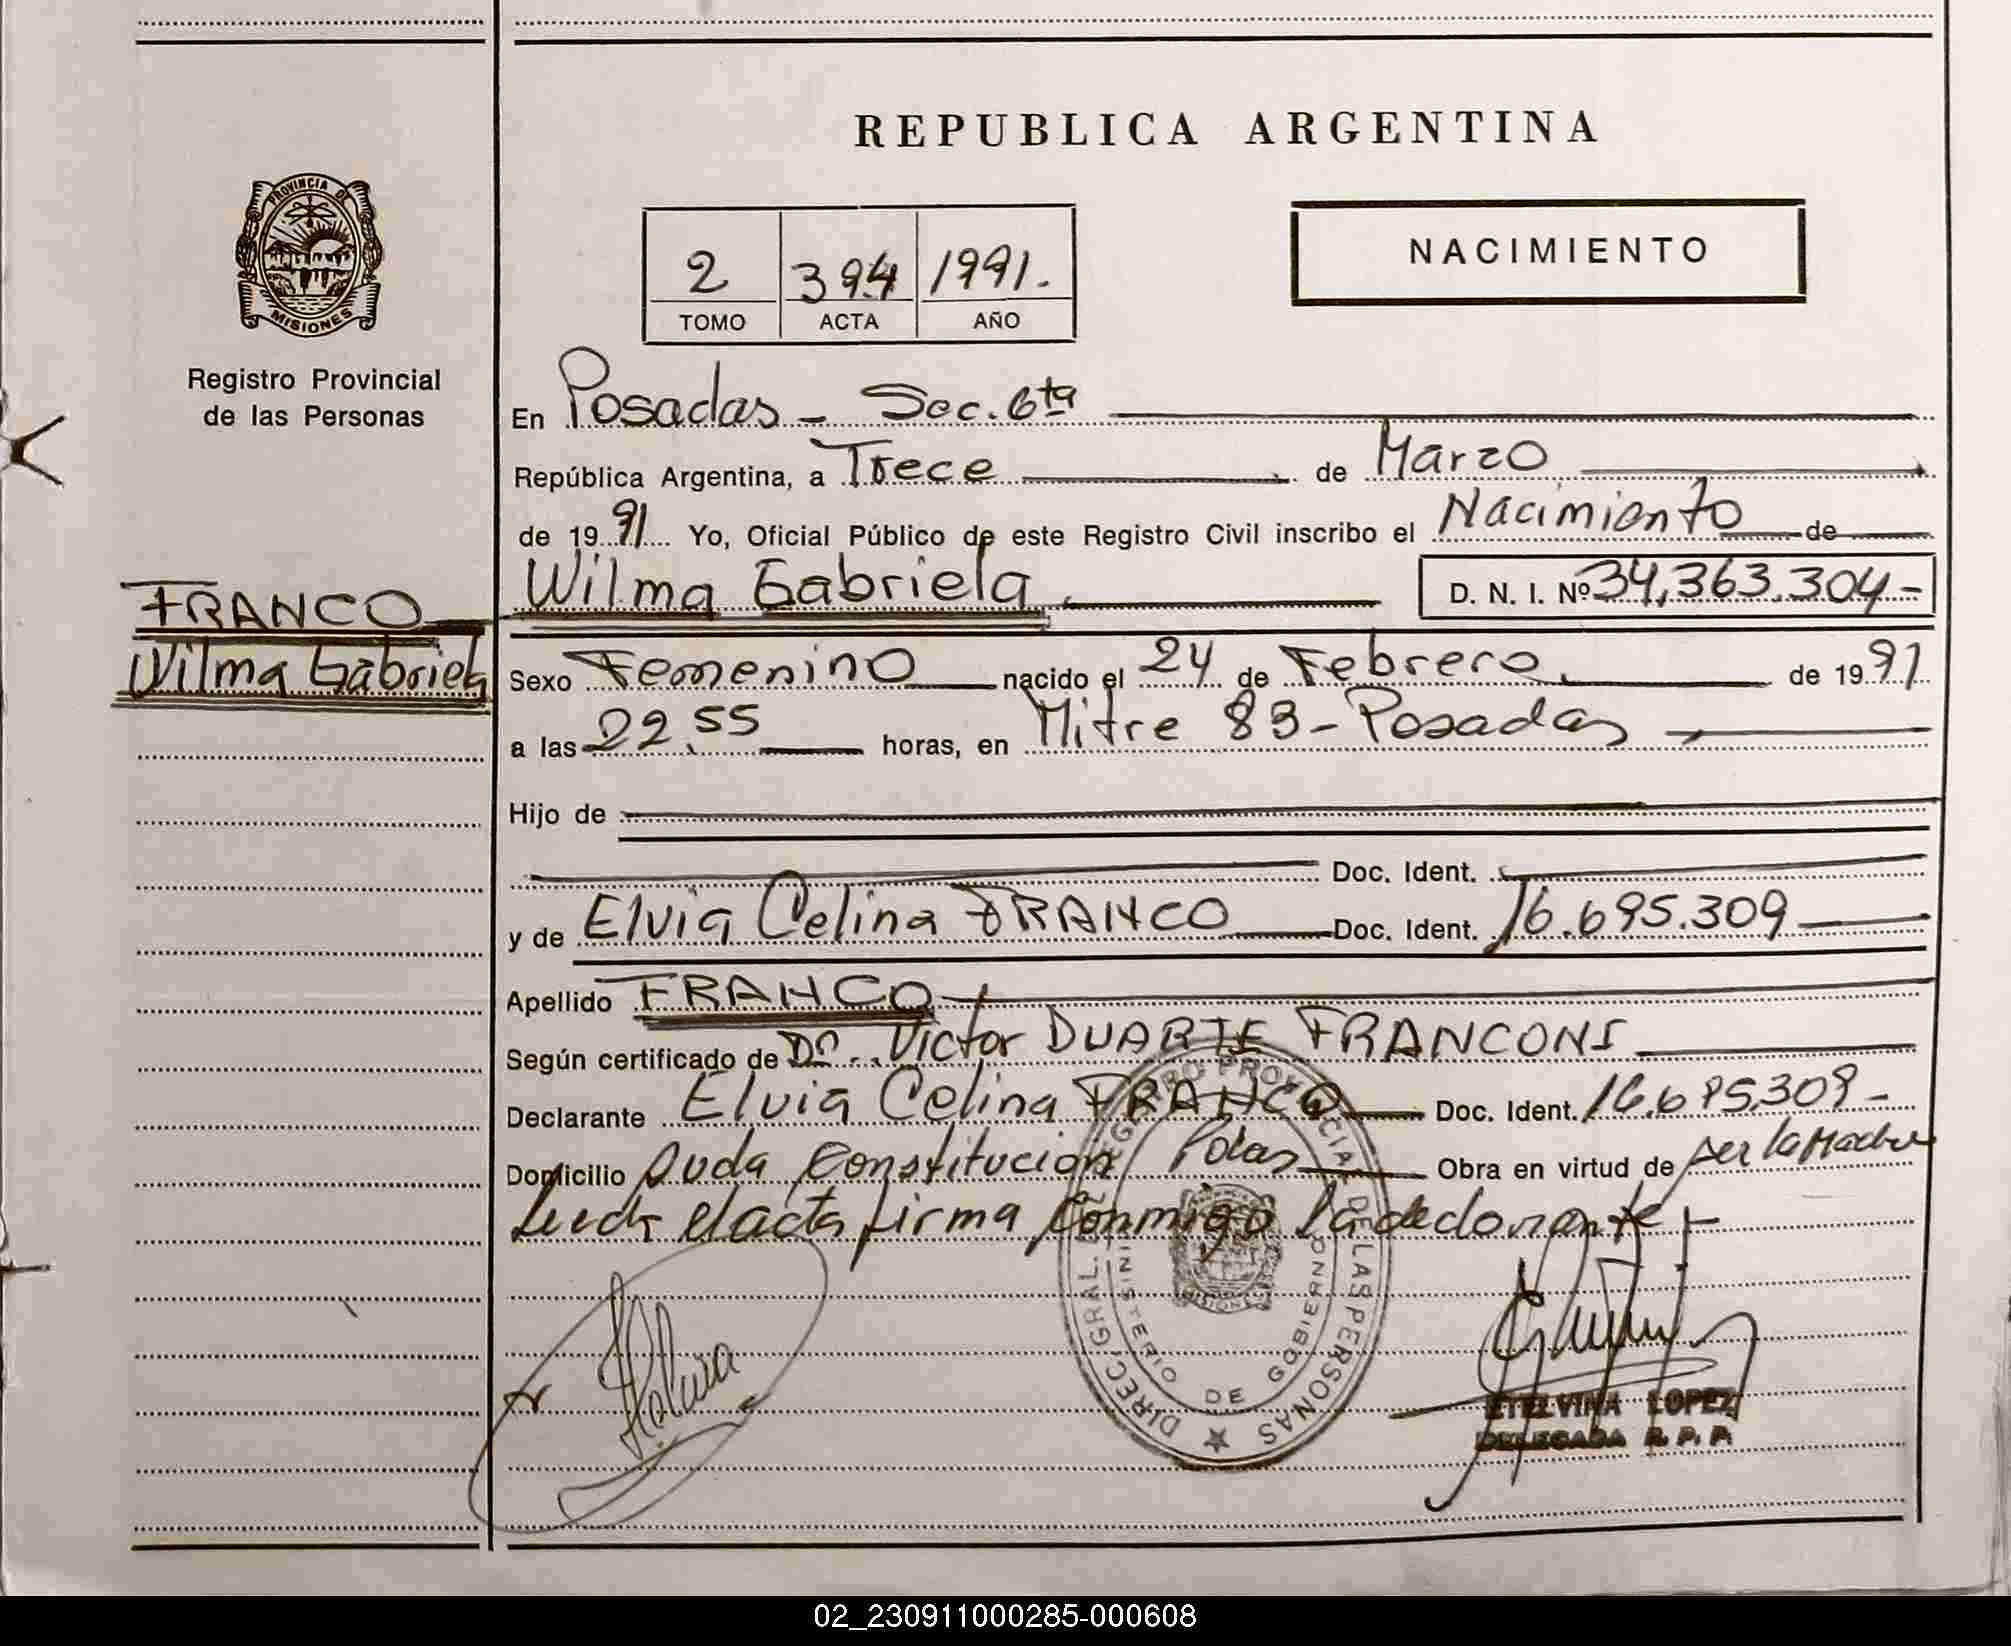 REPUBLICA ARGENTINA
PROVINCIA DE
MISIONES
Registro Provincial
de las Personas
2 394 1991.
TOMO ACTA AÑO
NACIMIENTO
En Posadas - Sec. 6ta
República Argentina, a Trece de Marzo
de 1991 Yo, Oficial Público de este Registro Civil inscribo el Nacimiento de
FRANCO
Wilma Gabriela
Wilma Gabriela D. N. I. Nº 34,363.304-
Sexo Femenino nacido el 24 de Febrero de 1991
a las 22,55 horas, en Mitre 83 - Posadas
Hijo de
Doc. Ident.
y de Elvia Celina FRANCO Doc. Ident. 16.695.309
Apellido FRANCO
Según certificado de Dr. Victor DUARTE FRANCONI
Declarante Elvia Celina FRANCO Doc. Ident. 16.695.309-
Domicilio Avda Constitución Pdas Obra en virtud de ser la Madre
Leida el acta firma conmigo la declarante
DIREC. GRAL. DEL REGISTRO PROVINCIAL DE LAS PERSONAS
MINISTERIO DE GOBIERNO
MISIONES
ETELVINA LOPEZ
DELEGADA R. P. P.
02_230911000285-000608